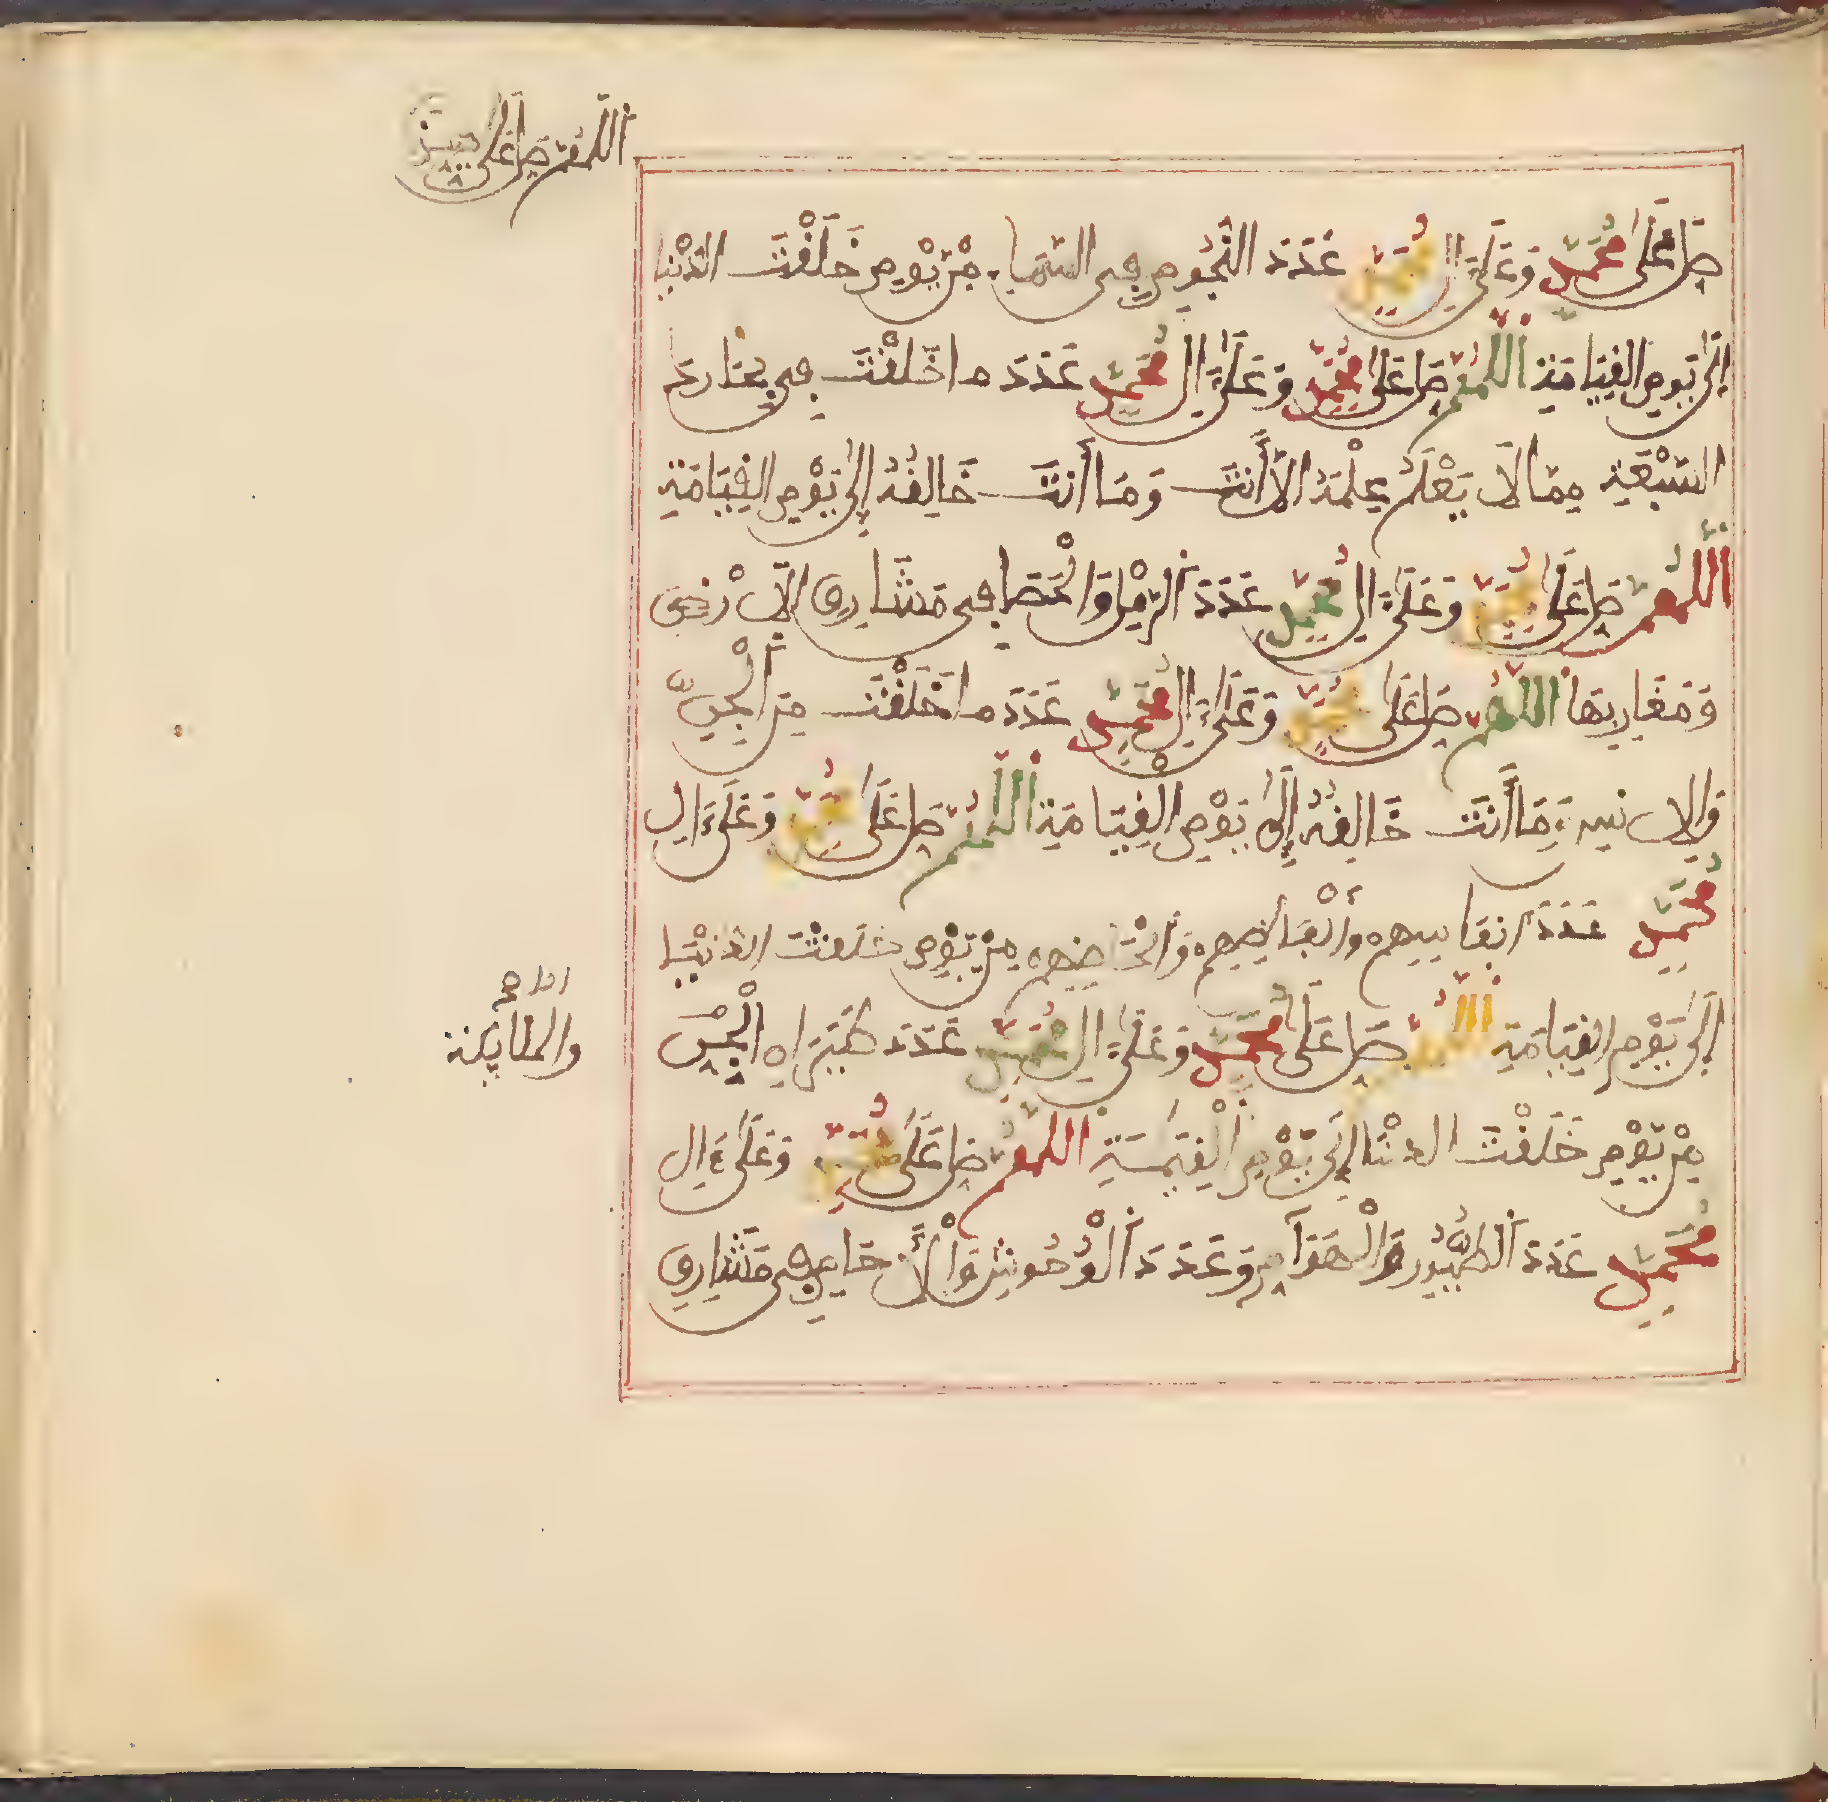 اللهم صل على سيد
صَلِّ عَلَى مُحَمَّدٍ وَعَلَىٰ ءَالِ مُحَمَّدٍ عَدَدَ النُّجُومِ فِى السَّمَاءِ مِنْ يَوْمِ خَلَقْتَ الدُّنْيَا
إِلَىٰ يَوْمِ الْقِيَامَةِ اللَّهُمَّ صَلِّ عَلَىٰ مُحَمَّدٍ وَعَلَىٰ ءَالِ مُحَمَّدٍ عَدَدَ مَا خَلَقْتَ فِى بِحَارِكَ
السَّبْعَةِ مِمَّا لَا يَعْلَمُ عِلْمَهُ إِلَّا أَنتَ وَمَا أَنتَ خَالِقُهُ إِلَىٰ يَوْمِ الْقِيَامَةِ
اللَّهُمَّ صَلِّ عَلَىٰ مُحَمَّدٍ وَعَلَىٰ ءَالِ مُحَمَّدٍ عَدَدَ الرَّمْلِ وَالْحَصَا فِى مَشَارِقِ الْأَرْضِ
وَمَغَارِبِهَا اللَّهُمَّ صَلِّ عَلَىٰ مُحَمَّدٍ وَعَلَىٰ ءَالِ مُحَمَّدٍ عَدَدَ مَا خَلَقْتَ مِنَ الْجِنِّ
وَالْإِنسِ وَمَا أَنتَ خَالِقُهُ إِلَىٰ يَوْمِ الْقِيَامَةِ اللَّهُمَّ صَلِّ عَلَىٰ مُحَمَّدٍ وَعَلَىٰ ءَالِ
مُحَمَّدٍ عَدَدَ أَنفَاسِهِمْ وَأَلْفَاظِهِمْ وَأَلْحَاظِهِمْ مِنْ يَوْمِ خَلَقْتَ الدُّنْيَا
إِلَىٰ يَوْمِ الْقِيَامَةِ اللَّهُمَّ صَلِّ عَلَىٰ مُحَمَّدٍ وَعَلَىٰ ءَالِ مُحَمَّدٍ عَدَدَ طَيَرَانِ الْجِنِّ
والملايكة
مِنْ يَوْمِ خَلَقْتَ الدُّنْيَا إِلَىٰ يَوْمِ الْقِيَٰمَةِ اللَّهُمَّ صَلِّ عَلَىٰ مُحَمَّدٍ وَعَلَىٰ ءَالِ
مُحَمَّدٍ عَدَدَ الطُّيُورِ وَالْهَوَآمِّ وَعَدَدَ الْوُحُوشِ وَالْأَنْعَامِ فِى مَشَارِقِ